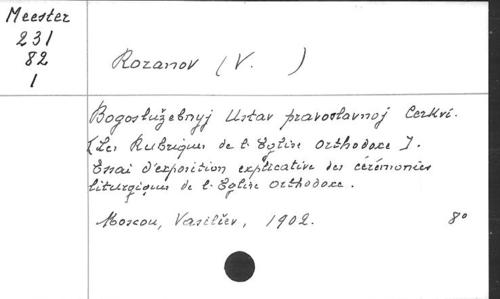 Meester
231
82
1
Rozanov (V. )
Bogoslužebnyj Ustav pravoslavnoj Cerkvi.
[Les Rubriques de l'Eglise Orthodoxe].
Essai d'exposition explicative des cérémonies
liturgiques de l'Eglise Orthodoxe.
Moscou, Vasil'ev, 1902. 8°